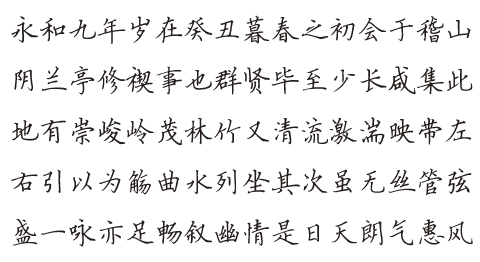 永和九年岁在癸丑暮春之初会于稽山
阴兰亭修禊事也群贤毕至少长咸集此
地有崇峻岭茂林竹又清流激湍映带左
右引以为觞曲水列坐其次虽无丝管弦
盛一咏亦足畅叙幽情是日天朗气惠风